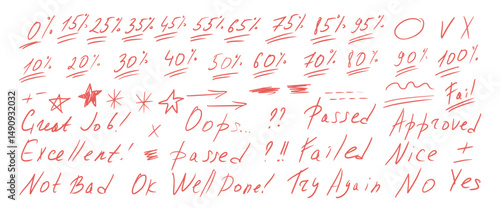 0% 15% 25% 35% 45% 55% 65% 75% 85% 95% V X
10% 20% 30% 40% 50% 60% 70% 80% 90% 100%
+ - Fail
Great Job! x Oops... ?? Passed Approved
Excellent! = passed ?!! Failed Nice ±
Not Bad Ok Well Done! Try Again No Yes
Adobe Stock | #1490932032